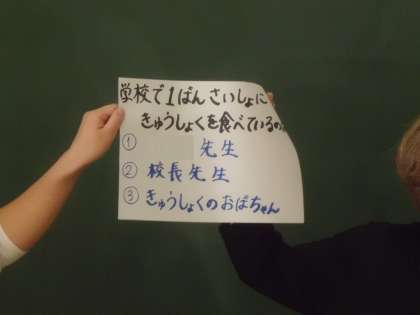 学校で1ばんさいしょに
きゅうしょくを食べているの
① 先生
② 校長先生
③ きゅうしょくのおばちゃん